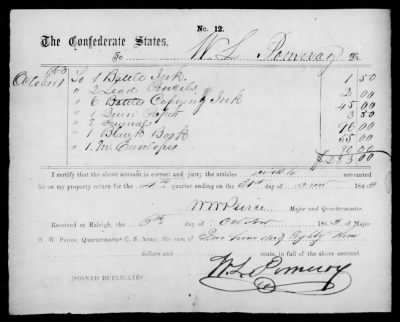 No. 12.
The Confederate States,
To W. L. Pomeroy Dr.
1863
October To 1 Bottle Ink 1 50
" 2 Lead Pencils 2 00
" 6 Bottles Copying Ink 45 00
" 1 Quire 3 50
" 96 00
" 1 Blank Book 55 00
" 1 M. Envelopes
$283 00
I certify that the above account is correct and just; the articles accounted
for on my property return for the 4th quarter ending the 31st day of 186
W W Peirce Major and Quartermaster.
Received at Raleigh, the 6th day of October 1863 of Major
W. W. Peirce, Quartermaster C. S. Army, the sum of Two hundred Eighty three
dollars and cents, in full of the above account.
[SIGNED DUPLICATES.]
W. L. Pomeroy